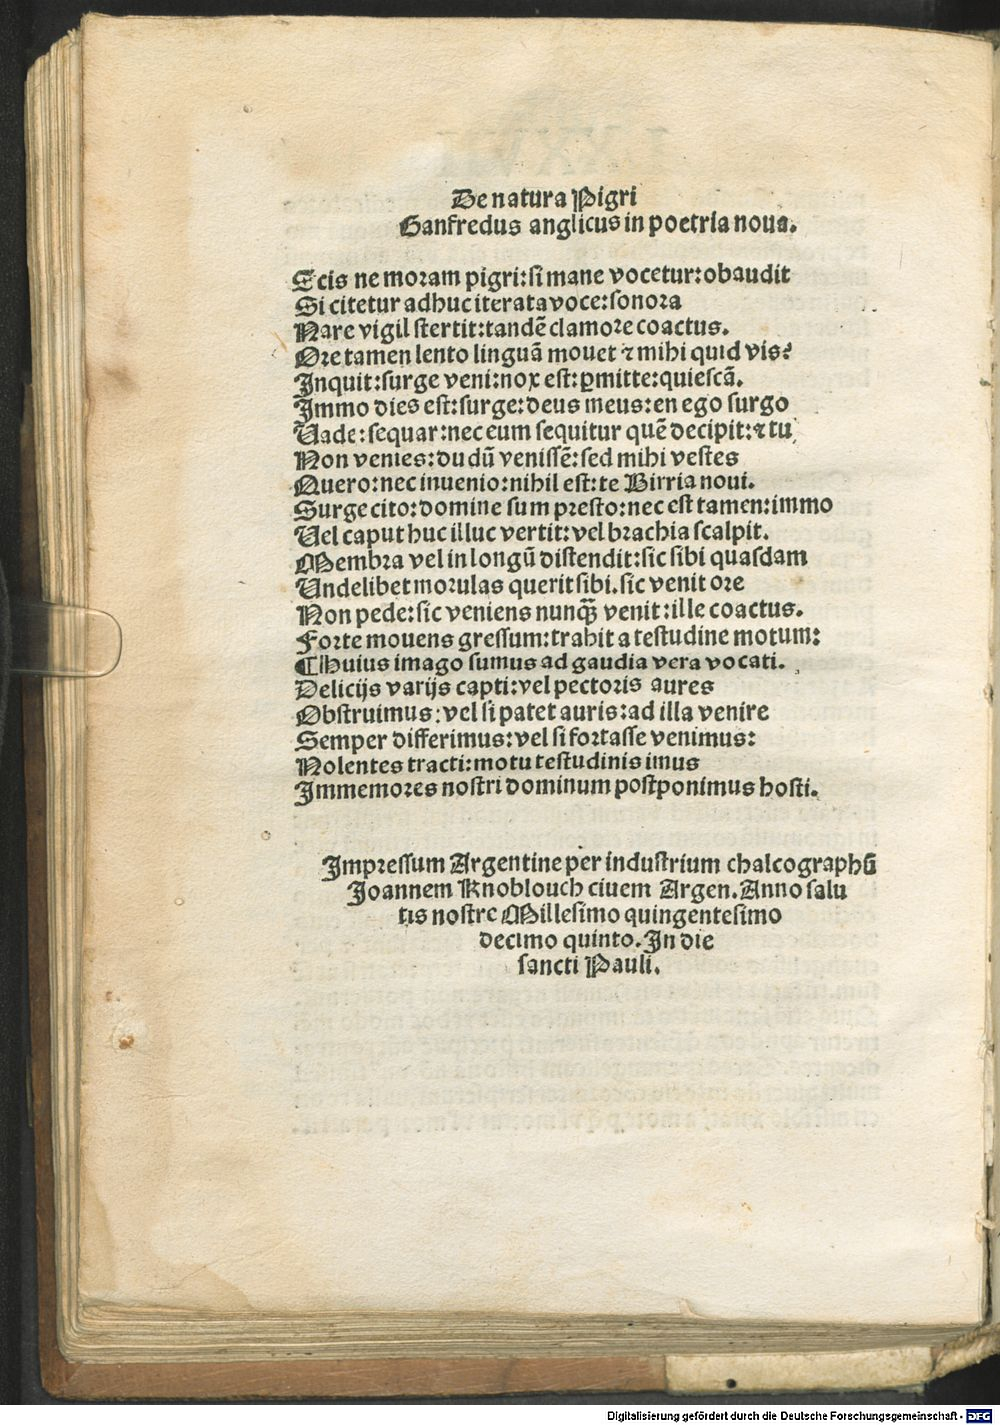 De natura Pigri
Ganfredus anglicus in poetria noua.
Scis ne moram pigri: si mane vocetur: obaudit
Si citetur adhuc iterata voce: sonora
Nare vigil stertit: tandē clamore coactus.
Ore tamen lento linguā mouet ⁊ mihi quid vis?
Inquit: surge veni: nox est: ꝑmitte: quiescā.
Immo dies est: surge: deus meus: en ego surgo
Vade: sequar: nec eum sequitur quē decipit: ⁊ tu
Non venies: du dū venissē: sed mihi vestes
Quero: nec inuenio: nihil est: te Birria noui.
Surge cito: domine sum presto: nec est tamen: immo
Vel caput huc illuc vertit: vel brachia scalpit.
Membra vel in longū distendit: sic sibi quasdam
Undelibet morulas querit sibi. sic venit ore
Non pede: sic veniens nunqꝫ venit: ille coactus.
Forte mouens gressum: trahit a testudine motum:
¶Huius imago sumus ad gaudia vera vocati.
Delicijs varijs capti: vel pectoris aures
Obstruimus: vel si patet auris: ad illa venire
Semper differimus: vel si fortasse venimus:
Nolentes tracti: motu testudinis imus
Immemores nostri dominum postponimus hosti.
Impressum Argentine per industrium chalcographū
Joannem Knoblouch ciuem Argen. Anno salu
tis nostre Millesimo quingentesimo
decimo quinto. In die
sancti Pauli.
Digitalisierung gefördert durch die Deutsche Forschungsgemeinschaft - DFG